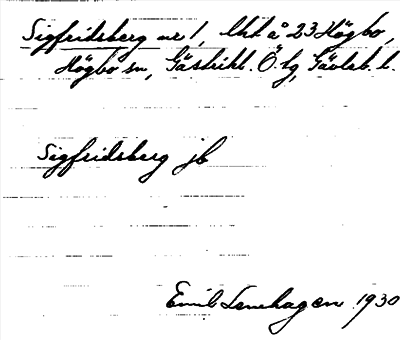 Sigfridsberg nr 1, Utt å 23 Högbo,
Högbo sn, Gästrikl. Ö. tg, Gävleb. l.
Sigfridsberg jb
Emil Lenehagen 1930